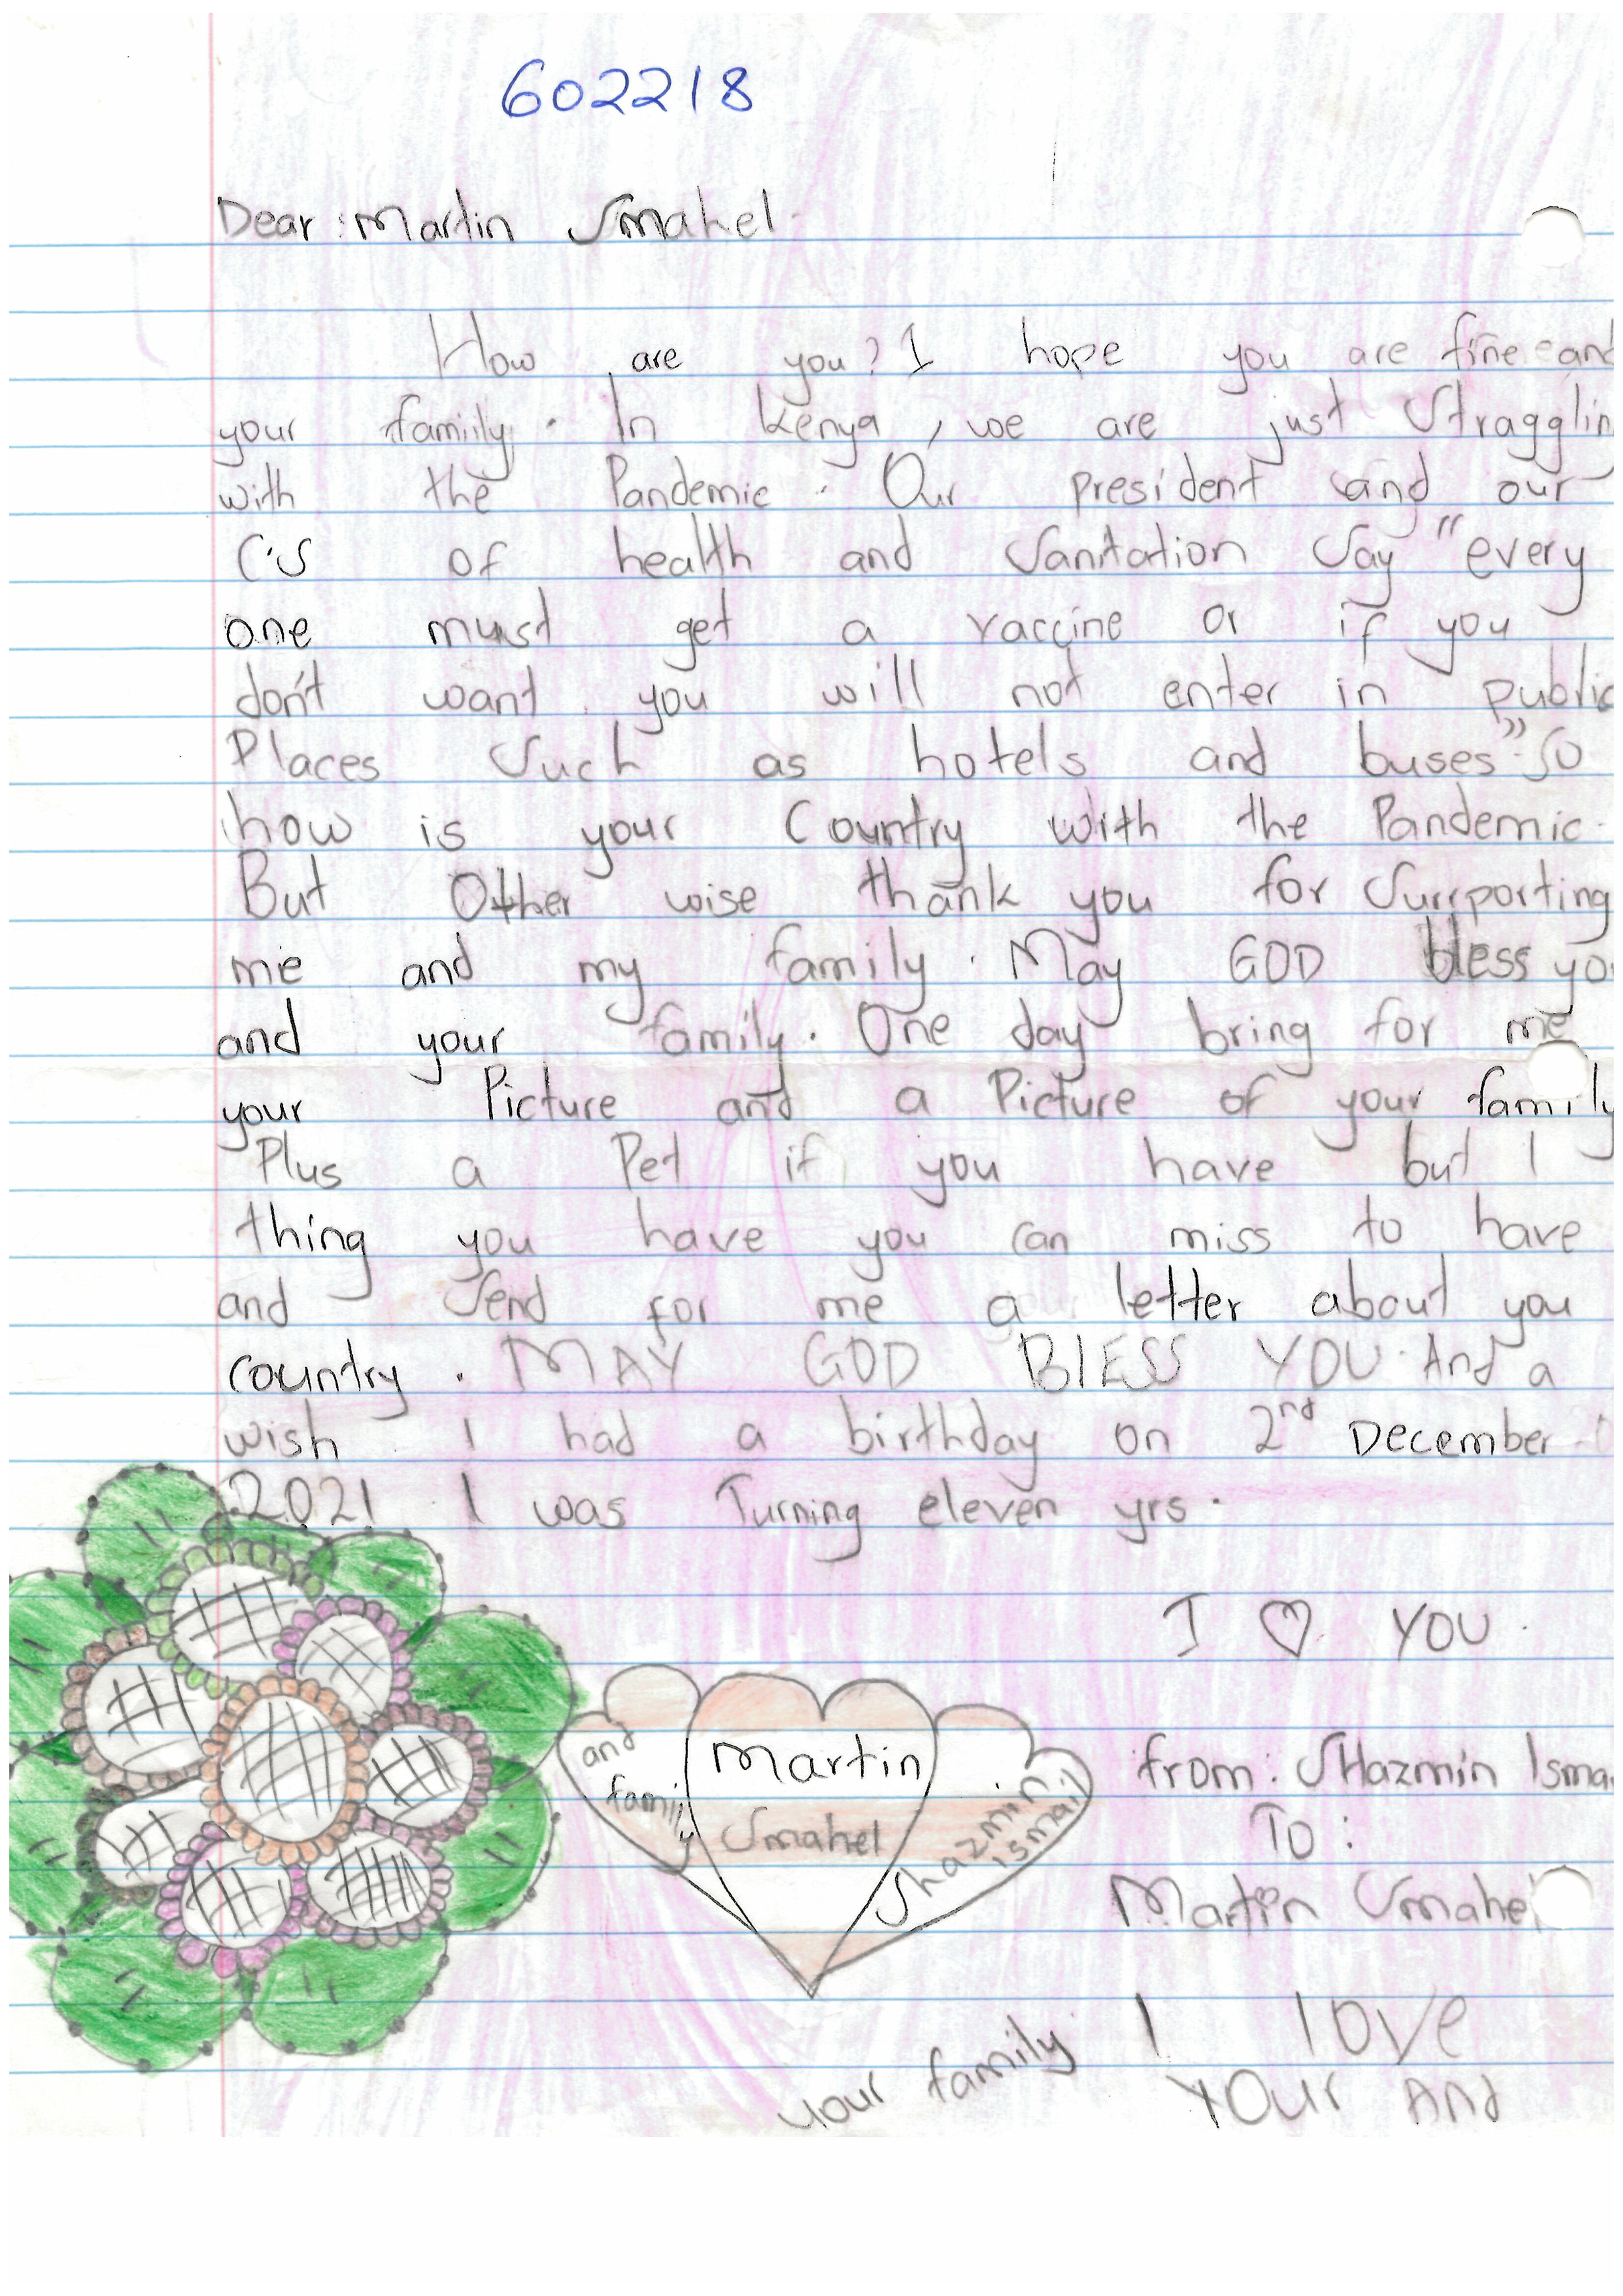 602218
Dear : Martin Smahel.
How are you? I hope you are fine and
your family. In kenya, we are just Stragglin
with the Pandemic. Our president and our
C.S of health and Sanitation Say "every
one must get a vaccine or if you
don't want you will not enter in public
Places Such as hotels and buses". So
how is your Country with the Pandemic.
But Other wise thank you for Surrporting
me and my family. May GOD bless yo
and your family. One day bring for me
your Picture and a Picture of your family
Plus a Pet if you have but 1
thing you have you can miss to have
and Send for me a letter about you
country. MAY GOD BLESS YOU. And a
wish I had a birthday on 2nd December
2021 I was Turning eleven yrs.
I ♡ YOU.
and family
Martin Smahel
Shazmin ismail
from: SHazmin Isma
TO:
Martin Smahel
I love
YOUr And
your family